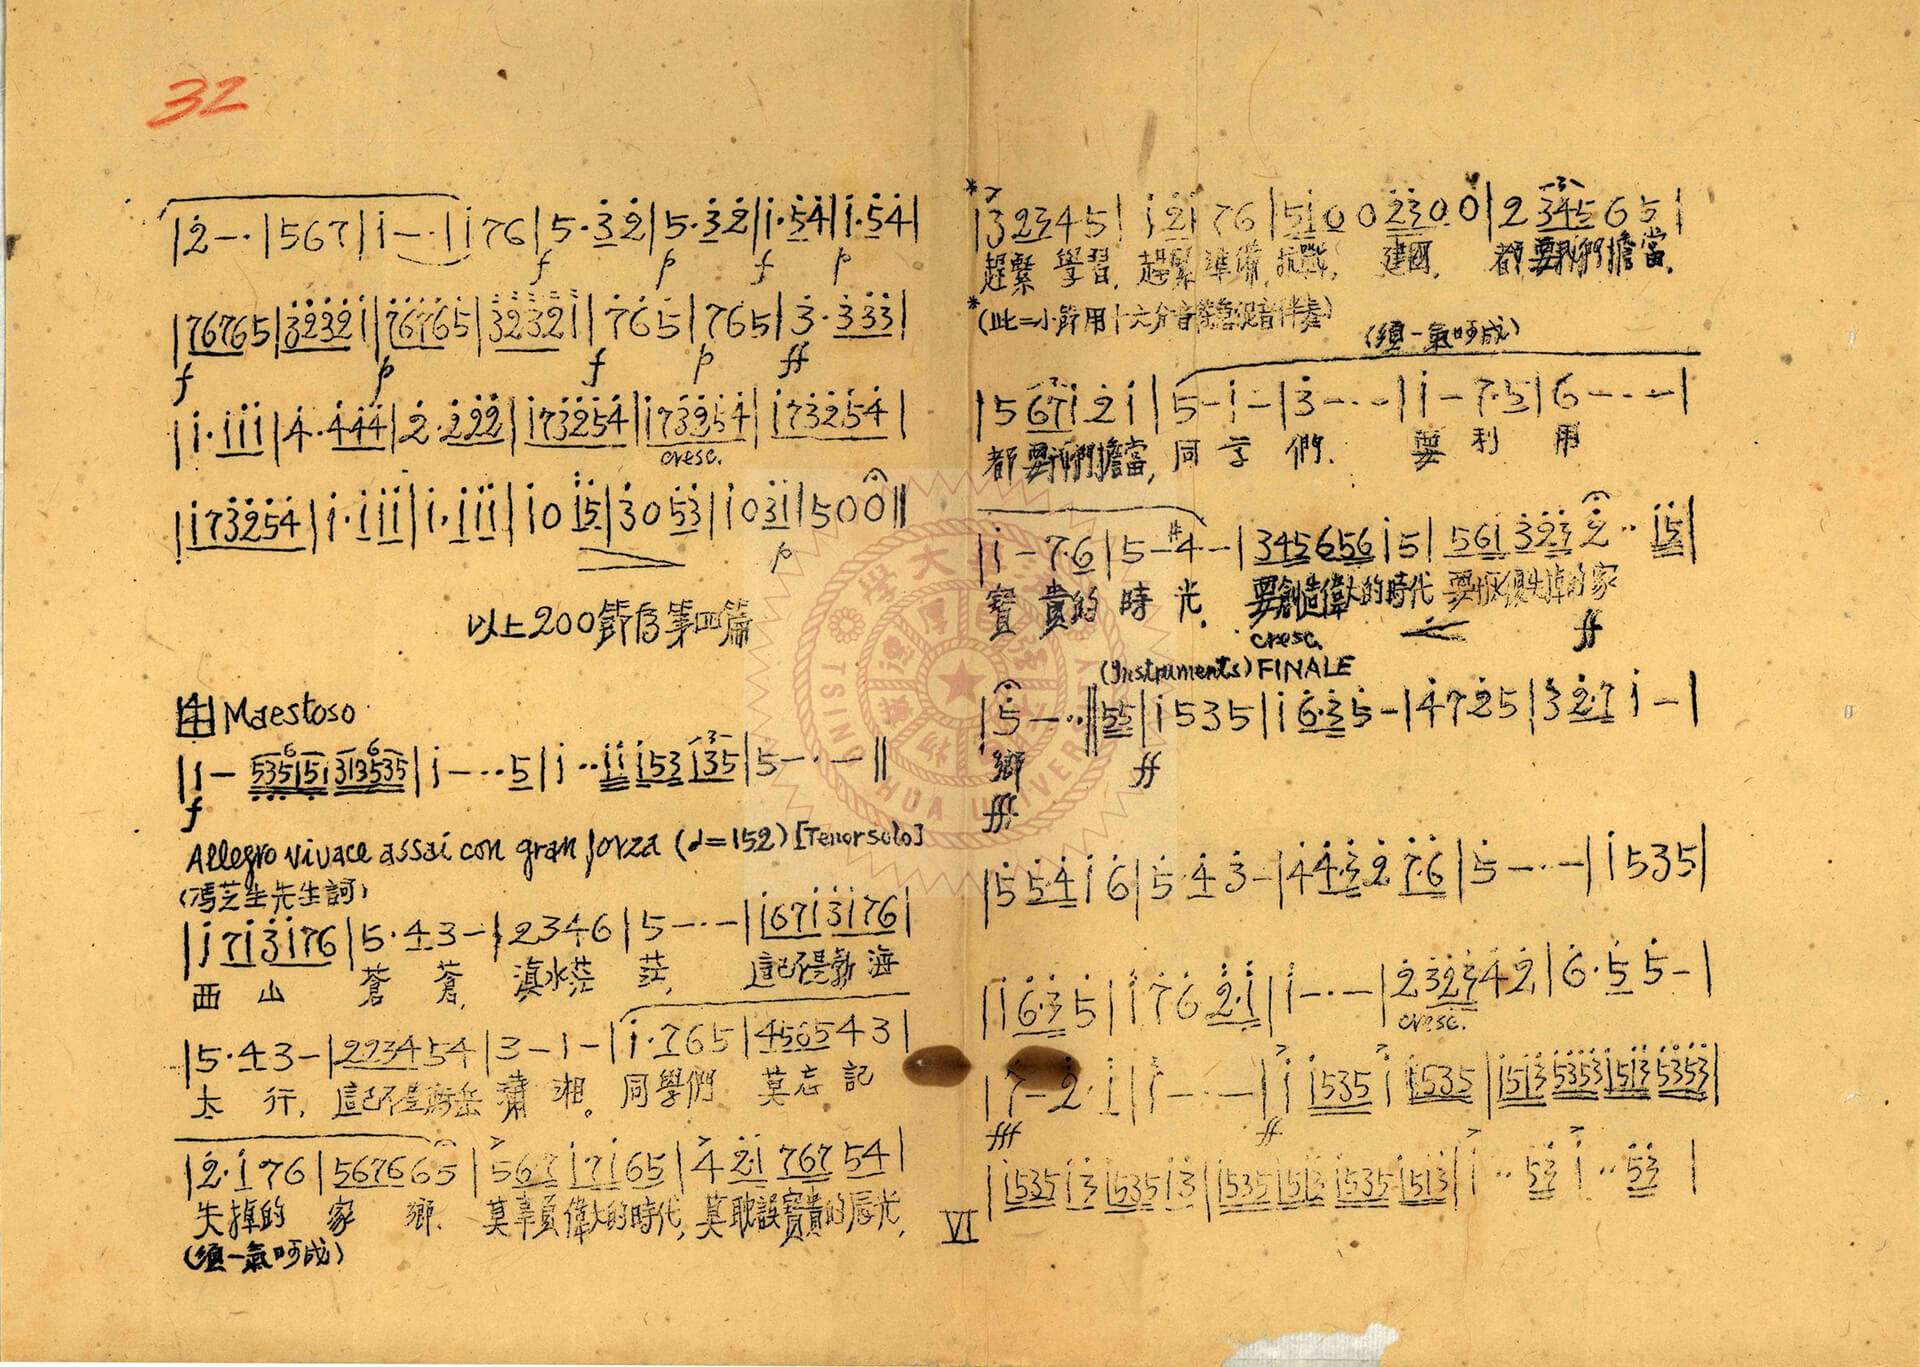 32
|2̇-·|567|i-·|i76|5·3̇2̇|5·3̇2̇|i·5̇4̇|i·5̇4̇|
f p f p
|76765|3̇2̇3̇2̇i|7̇6̇7̇6̇5̇|3̇2̇3̇2̇i|7̇6̇5̇|765|3̇·3̇3̇3̇|
f p f p ff
|i·iii|4̇·4̇4̇4̇|2̇·2̇2̇2̇|i73̇2̇5̇4̇|i73̇2̇5̇4̇|i73̇2̇5̇4̇|
cresc.
|i73̇2̇5̇4̇|i·iii|i·iii|i0i5|3̇05̇3̇|i03̇i|500||
p
以上200節為第四篇
4 Maestoso
|i-535151313535|i-··5|i··iii53i35|5-·-||
f
Allegro vivace assai con gran forza (d=152) [Tenor solo]
(馮芝生先生詞)
|i7i3̇i76|5·43-|2346|5-·-|i67i3̇i76|
西山 蒼蒼, 滇水茫茫, 這已不是渤海
|5·43-|223454|3-1-|i·765|456543|
太行, 這已不是衡岳瀟湘。同學們 莫忘記
|2̇·i76|567665|567i7i65|42̇i76754|
失掉的 家鄉. 莫辜負偉大的時代, 莫耽誤寶貴的辰光,
(須一氣呵成)
VI
*|3̇2345|i2̇i76|5i002̇3̇00|234565|
趕緊學習, 趕緊準備, 抗戰, 建國, 都要我們擔當,
*(此二小節用十六分音符急促音伴奏)
(須一氣呵成)
|567i2̇i|5-i-|3̇-·-|i-7·5|6-·-|
都要我們擔當, 同学們. 要利用
|i-7·6|5-#4-|345656i5|56i3̇2̇3̇2̇··i5|
寶貴的時光. 要創造偉大的時代 要恢復失掉的家
cresc. ff
(Instruments) FINALE
|5̇-··||55|i535|i6̇·3̇5̇-|4̇72̇5|3̇2̇·7i-|
鄉 ff
fff
|5̇5̇·4̇i6̇|5̇·4̇3̇-|4̇4̇·3̇2̇7̇·6̇|5̇-·-|i535|
|i6̇·3̇5̇|i7̇6̇2̇·i|i-·-|2̇3̇2̇3̇4̇2̇|6̇·5̇5̇-|
cresc.
|7̇-2̇·i|i-·-|ii535ii535|i5i3̇5̇3̇5̇3̇i5i3̇5̇3̇5̇3̇|
fff ff
|i535i3̇i535i3̇|i535i5i3̇i535i5i3̇|i··5̇3̇i··5̇3̇|